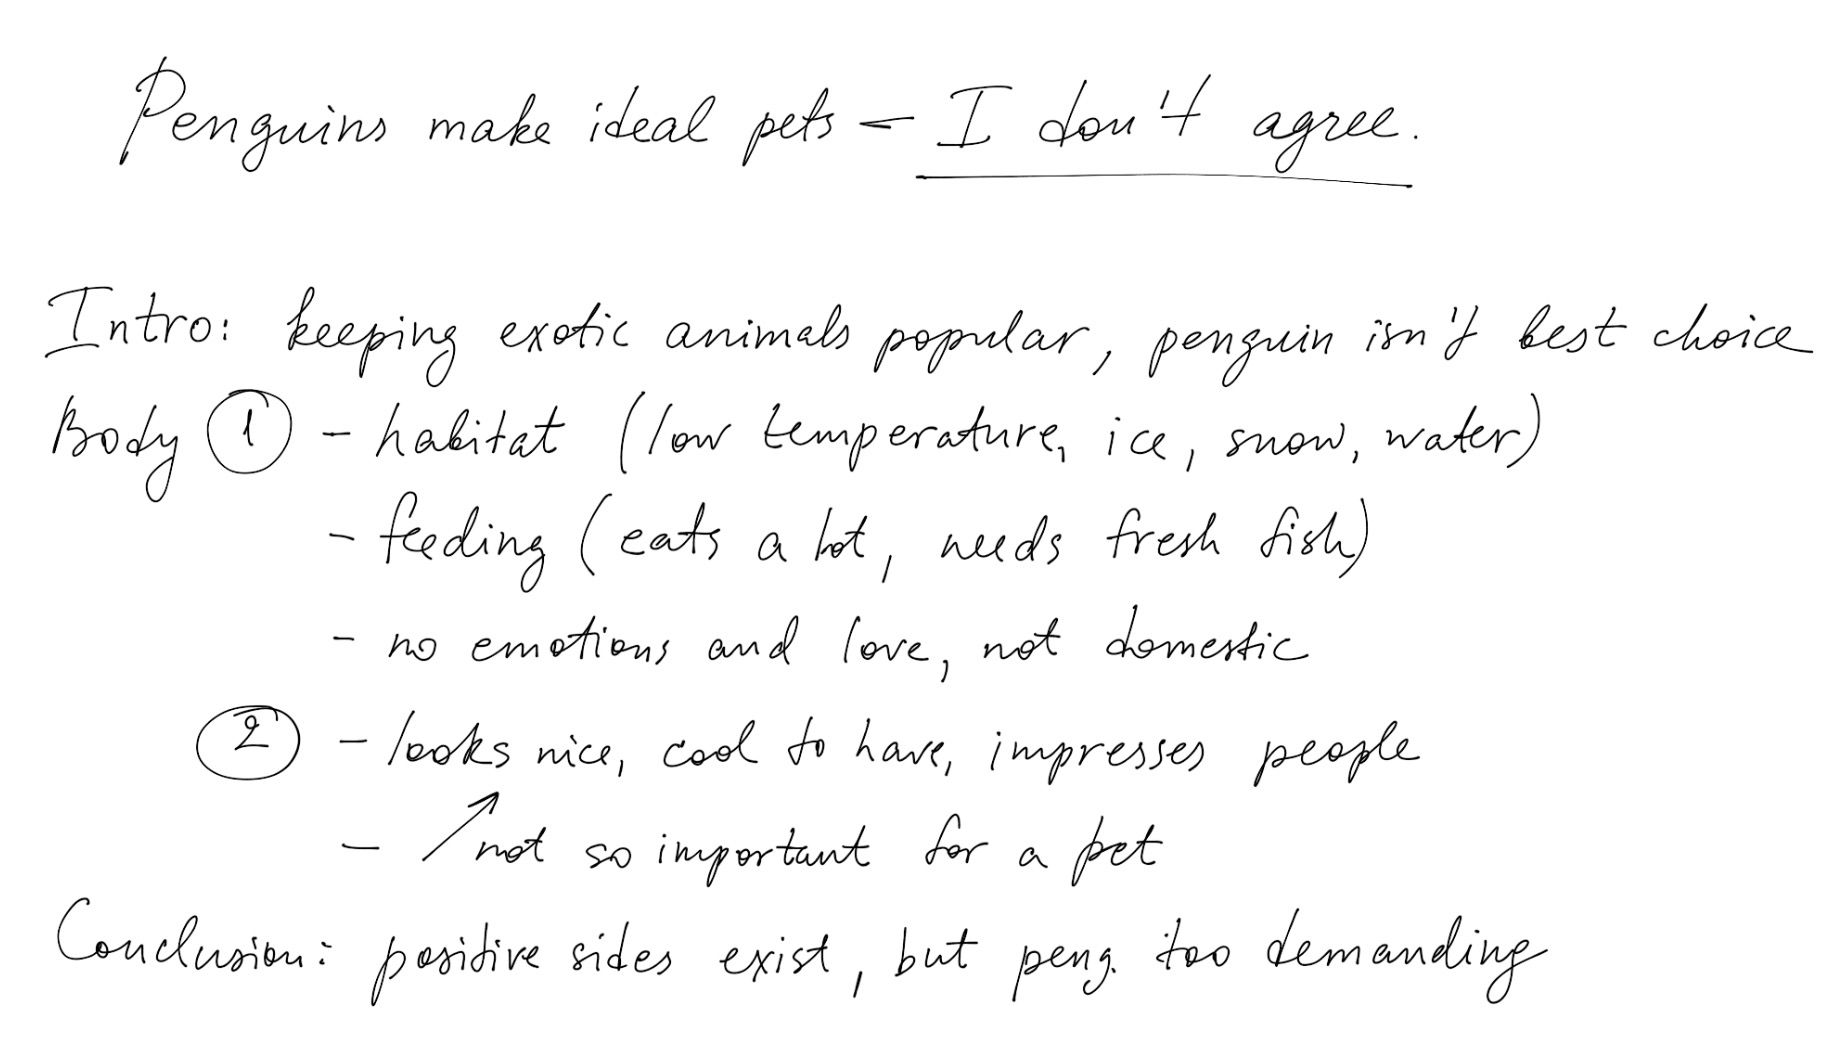 Penguins make ideal pets – I don't agree.
Intro: keeping exotic animals popular, penguin isn't best choice
Body ① - habitat (low temperature, ice, snow, water)
- feeding (eats a lot, needs fresh fish)
- no emotions and love, not domestic
② - looks nice, cool to have, impresses people
- ↗ not so important for a pet
Conclusion: positive sides exist, but peng. too demanding